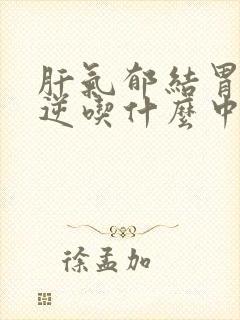 肝氣郁結胃
逆喫什麼中
徐孟加